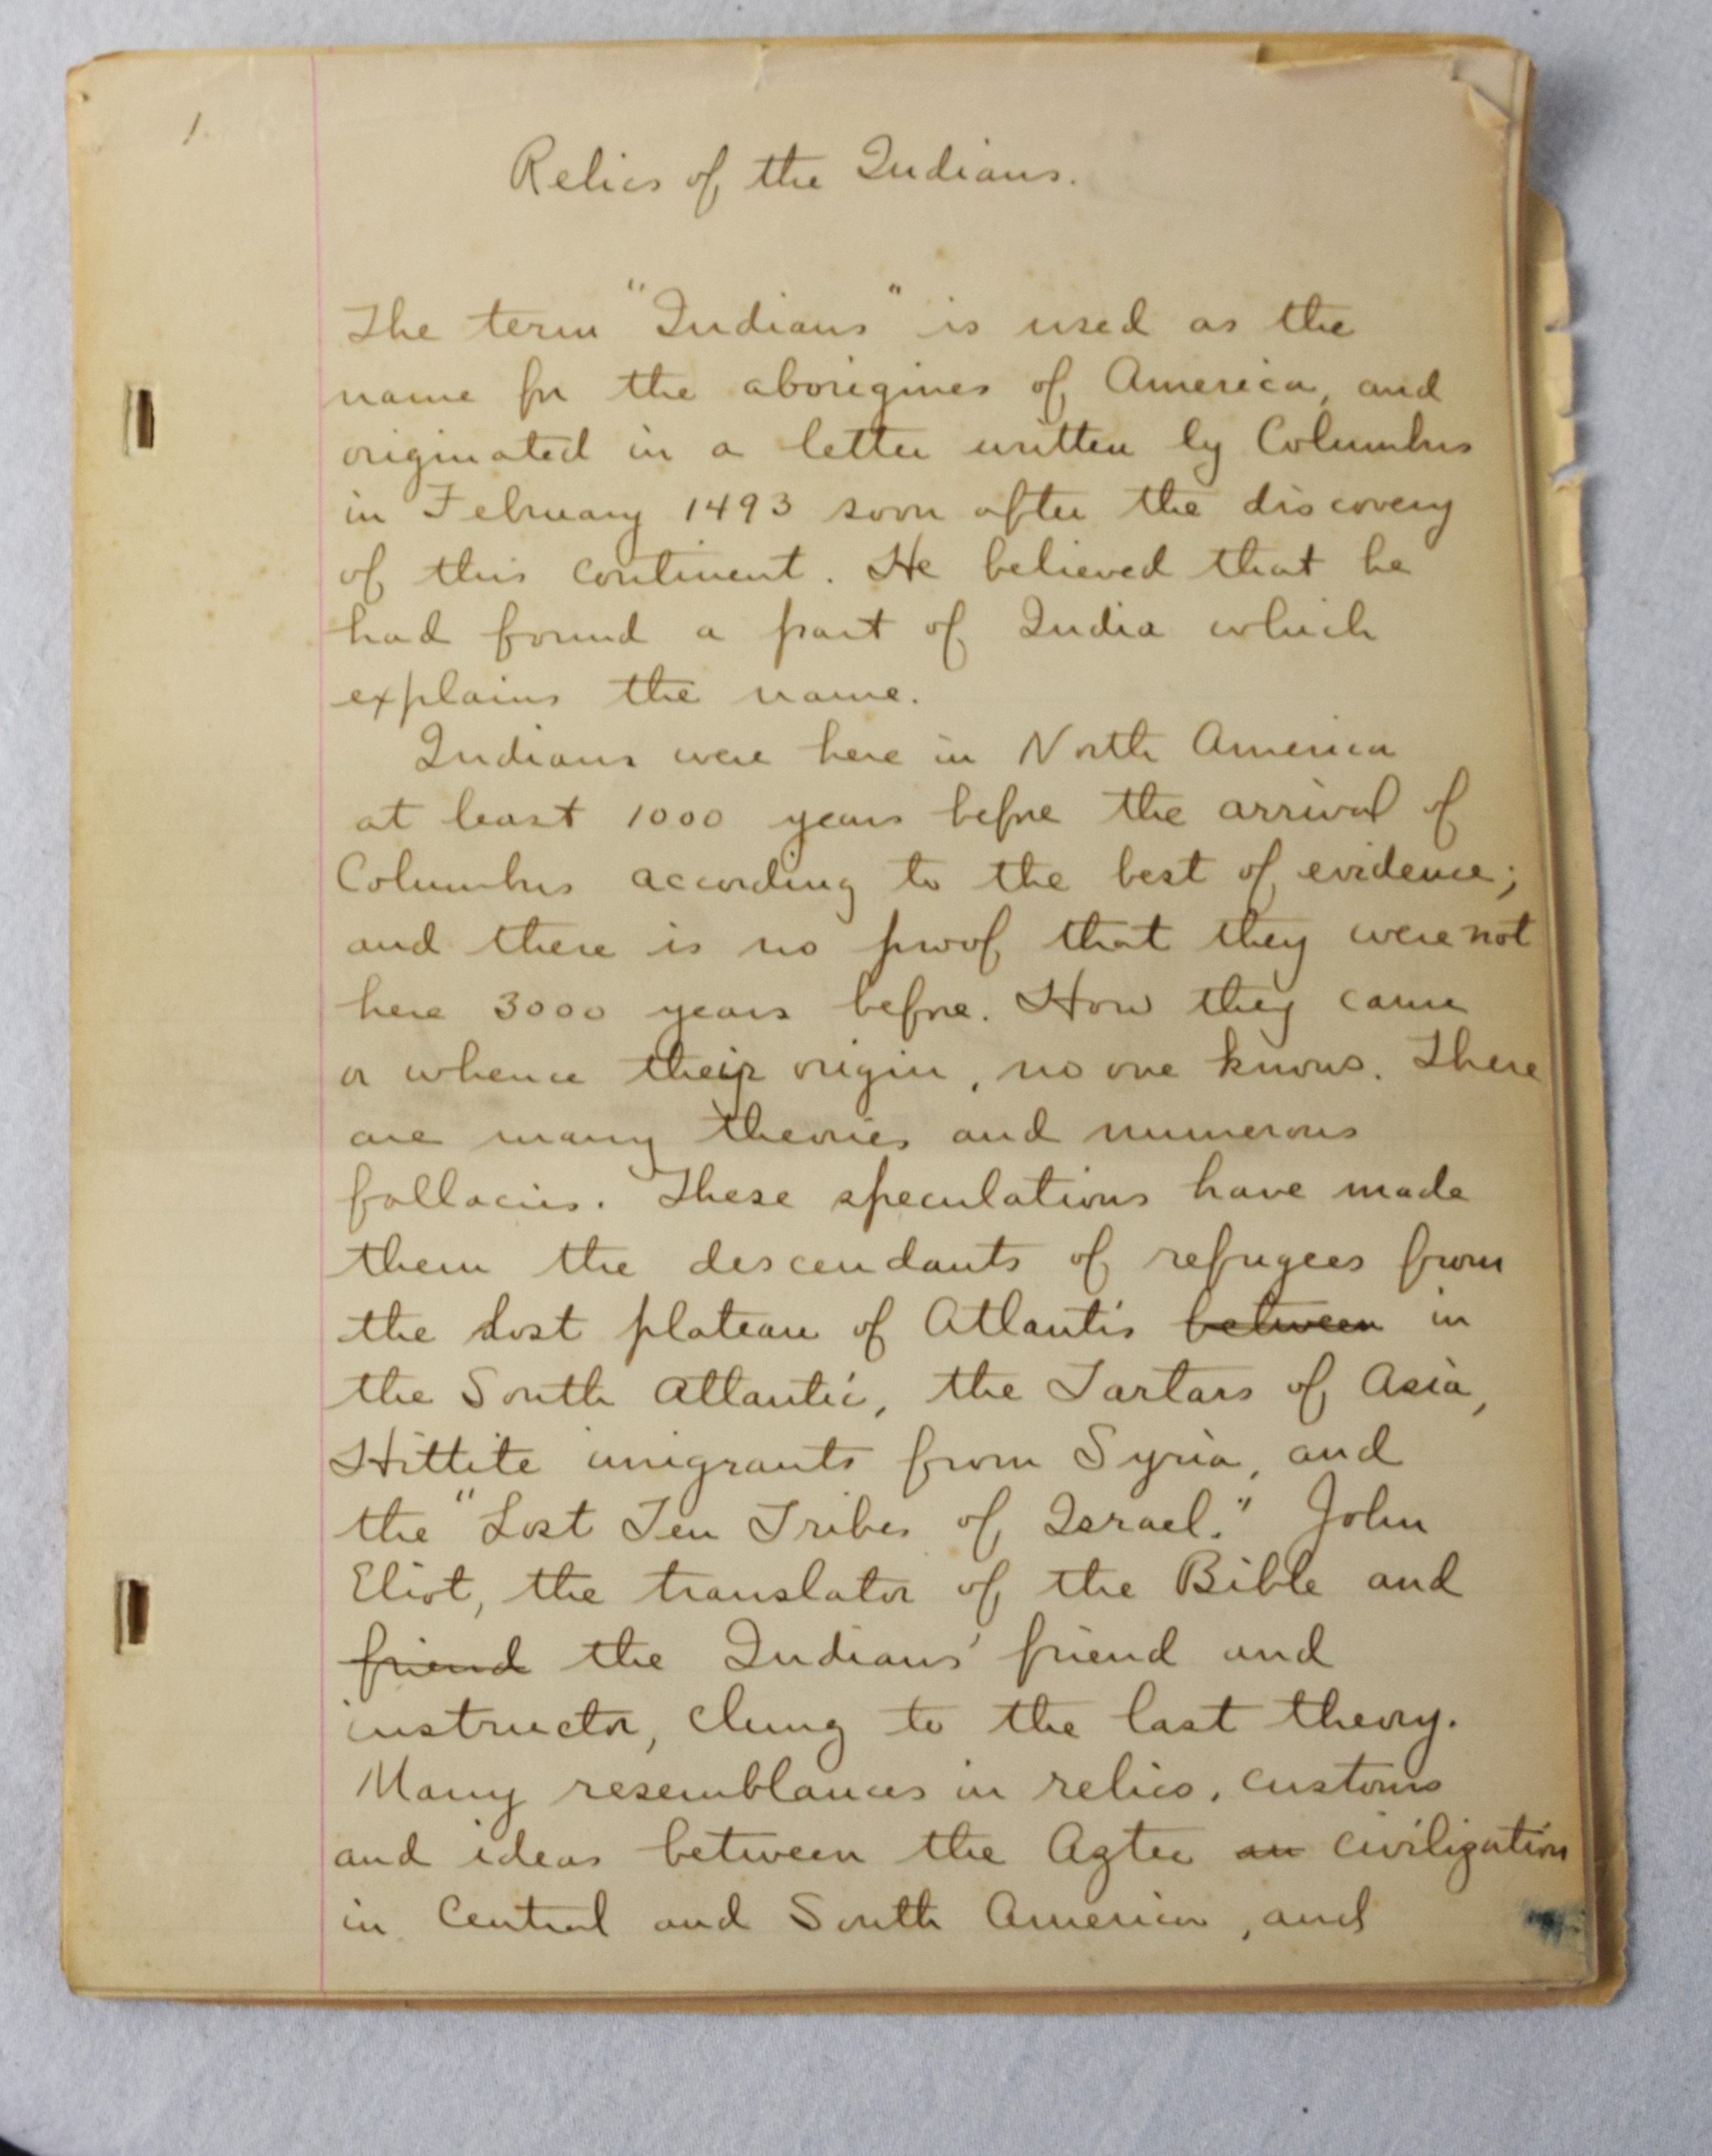 1.
Relics of the Indians.
The term "Indians" is used as the
name for the aborigines of America, and
originated in a letter written by Columbus
in February 1493 soon after the discovery
of this continent. He believed that he
had found a part of India which
explains the name.
Indians were here in North America
at least 1000 years before the arrival of
Columbus according to the best of evidence;
and there is no proof that they were not
here 3000 years before. How they came
or whence their origin, no one knows. There
are many theories and numerous
fallacies. These speculations have made
them the descendants of refugees from
the Lost plateau of Atlantis between in
the South Atlantic, the Tartars of Asia,
Hittite imigrants from Syria, and
the "Lost Ten Tribes of Israel." John
Eliot, the translator of the Bible and
friend the Indians' friend and
instructor, clung to the last theory.
Many resemblances in relics, customs
and ideas between the Aztec an civilization
in Central and South America, and